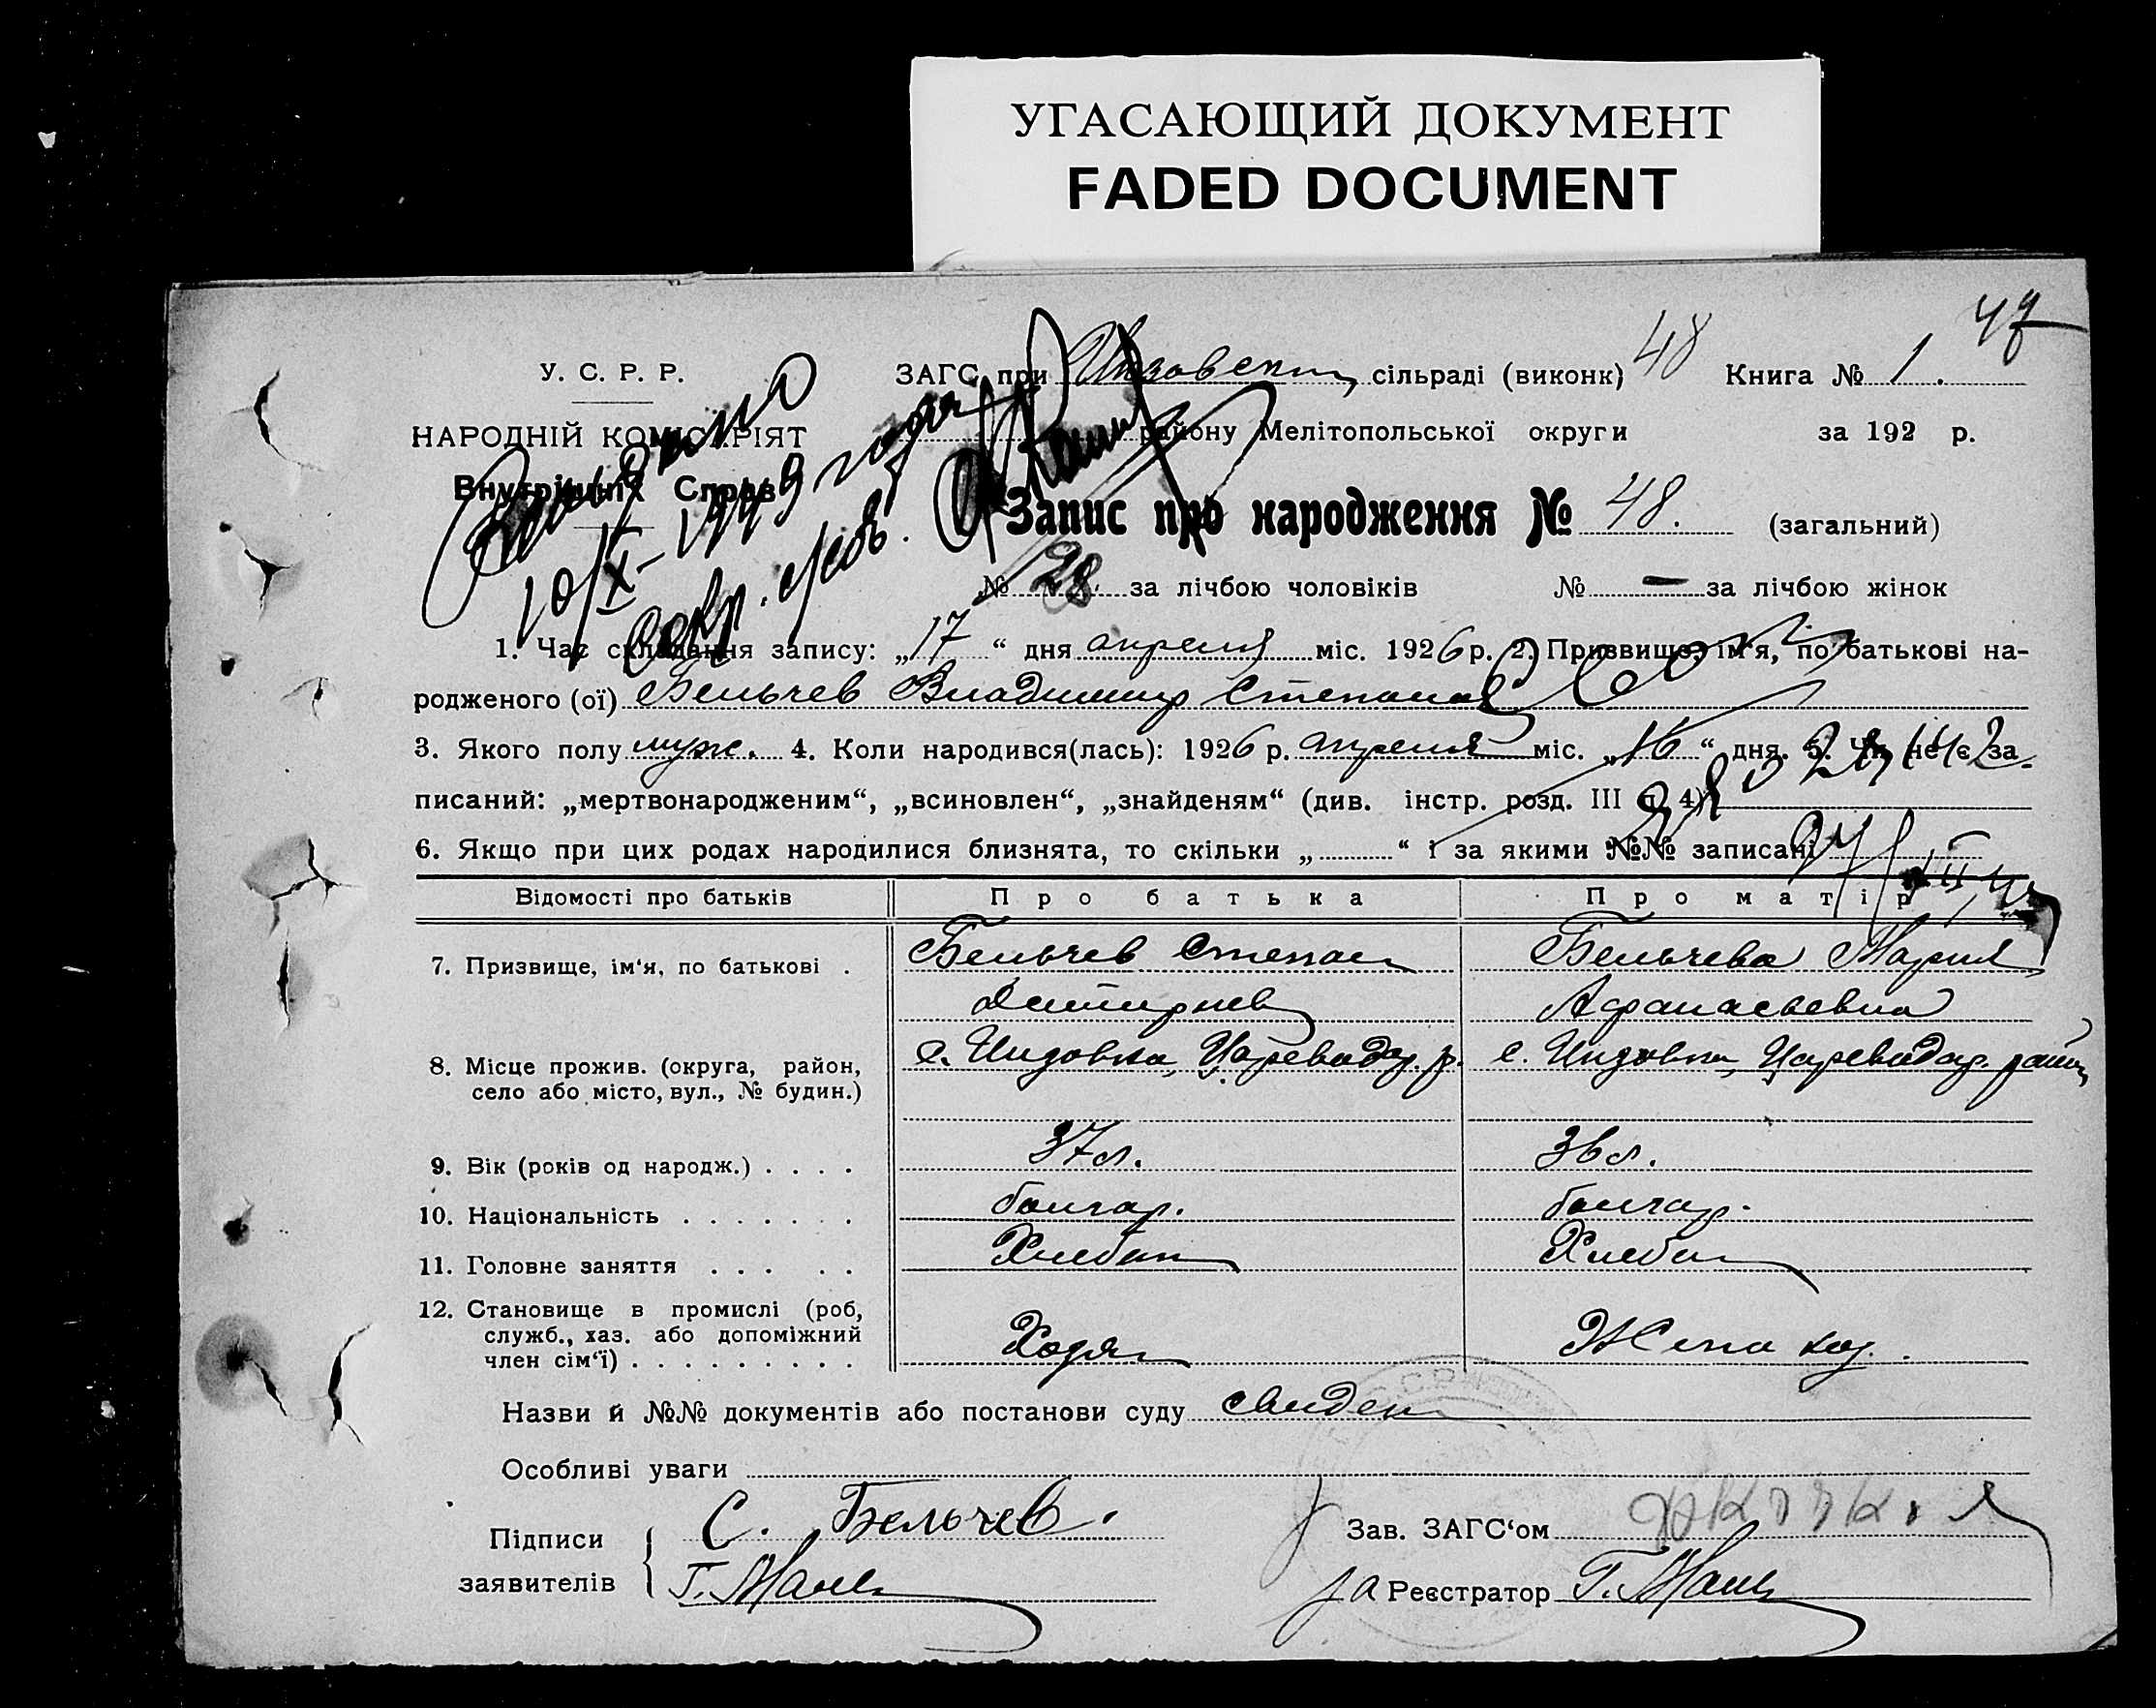 УГАСАЮЩИЙ ДОКУМЕНТ
FADED DOCUMENT
47
У. С. Р. Р.
ЗАГС при сільраді (виконк) 48 Книга № 1.
НАРОДНІЙ КОМІСАРІЯТ
району Мелітопольської округи за 192 р.
Внутрішніх Справ
10/X-1949 года
Запис про народження № 48. (загальний)
№ 28 за лічбою чоловіків № — за лічбою жінок
1. Час складання запису: „17“ дня апреля міс. 1926 р. 2. Призвище, ім'я, по батькові на-
родженого (ої) Бельчев Владимир Степанов
3. Якого полу муж. 4. Коли народився(лась): 1926 р. апреля міс. „16“ дня. 5. Чи не є за-
писаний: „мертвонародженим“, „всиновлен“, „знайденям“ (див. інстр. розд. III п. 4)
6. Якщо при цих родах народилися близнята, то скільки „ “ і за якими №№ записані
Відомості про батьків Про батька Про матір
7. Призвище, ім'я, по батькові . Бельчев Степан Бельчева Мария
Дмитриев Афанасьевна
8. Місце прожив. (округа, район, с. Инзовка, Цареводар. р. с. Инзовка, Цареводар. район
село або місто, вул., № будин.)
9. Вік (років од народж.) . . . . 37 л. 36 л.
10. Національність . . . . . . . болгар. болгар.
11. Головне заняття . . . . . Хлебоп Хлебоп
12. Становище в промислі (роб,
служб., хаз. або допоміжний
член сім'ї) . . . . . . . . . Хозяин Жена хоз.
Назви й №№ документів або постанови суду
Особливі уваги
Підписи С. Бельчев. Зав. ЗАГС'ом
заявителів за Реєстратор